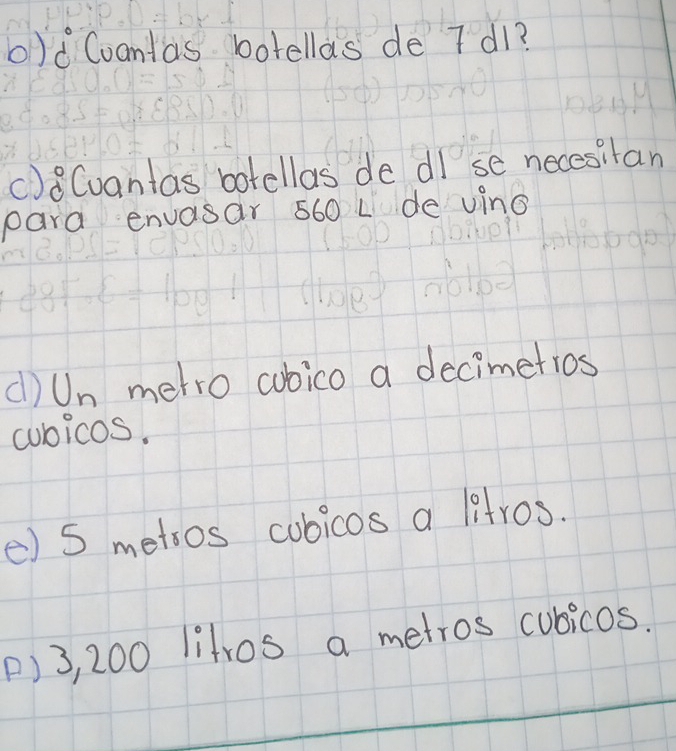 b) ¿Cuantas botellas de 7 dl?
c) ¿Cuantas botellas de dl se necesitan
para envasar 560 L de vino
d) Un metro cubico a decimetros
cubicos.
e) 5 metros cubicos a litros.
f) 3,200 litros a metros cubicos.